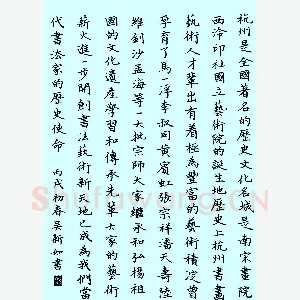 杭州是全國著名的歷史文化名城是南宋畫院
西泠印社國立藝術院的誕生地歷史上杭州書畫
藝術人才輩出有着極為豐富的藝術積淀曾
孕育了馬一浮李叔同黃賓虹張宗祥潘天壽陸
維釗沙孟海等一大批宗師大家繼承和弘揚祖
國的文化遺產學習和傳承先輩大家的藝術
薪火進一步開創書法藝術新天地已成為我們當
代書法家的歷史使命 丙戌初春吳新如書